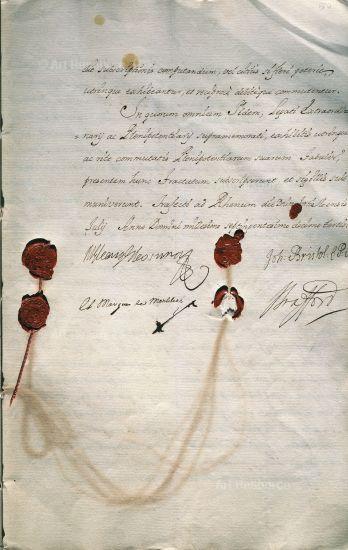 die subscriptionis computandum, vel citius si fieri poterit
utrinque exhibeantur, et reciprocè debiteque commutentur.
In quorum omnium Fidem, Legati Extraordi-
=narij ac Plenipotentiarij supramemorati, exhibitis utrinque
ac rite commutatis Plenipotentiarum suarum Tabulis,
presentem hunc Tractatum subscripserunt et sigillis suis
muniverunt. Trajecti ad Rhenum die
Julij Anno Domini millesimo septingentesimo decimo tertio.
Joh: Bristol
El Marques de Monteleon
Strafford